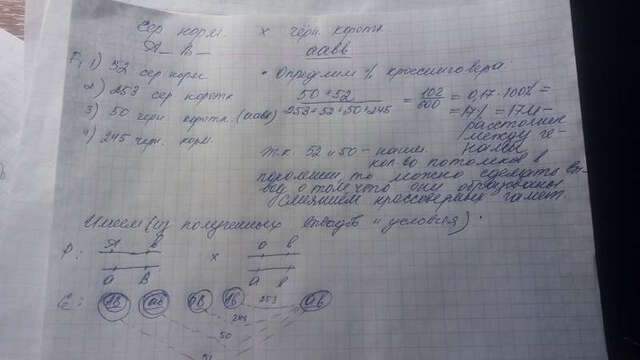 Сер норм. х черн. коротк
А_ В_ аавв
F₁ 1) 52 сер норм
2) 253 сер коротк
3) 50 черн. коротк. (аавв)
4) 245 черн. норм.
• Определим % кроссинговера
50 + 52 / 253+52+50+245 = 102/600 = 0,17·100% =
= 17% = 17М -
расстояние
между ге-
нами
т.к. 52 и 50 - наим.
кол-во потомков в
то можно сделать вы-
вод о том что они образованы
слиянием кроссоверных гамет.
Имеем (из полученных выводов и условия).
Р: А в х а в
а В а в
G: АВ ав аВ Ав 253 ав
245
50